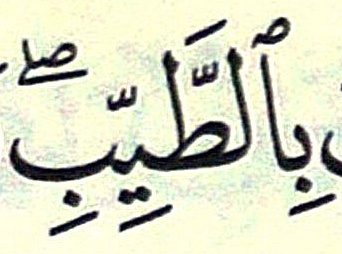 بِٱلطَّيِّبِۖ